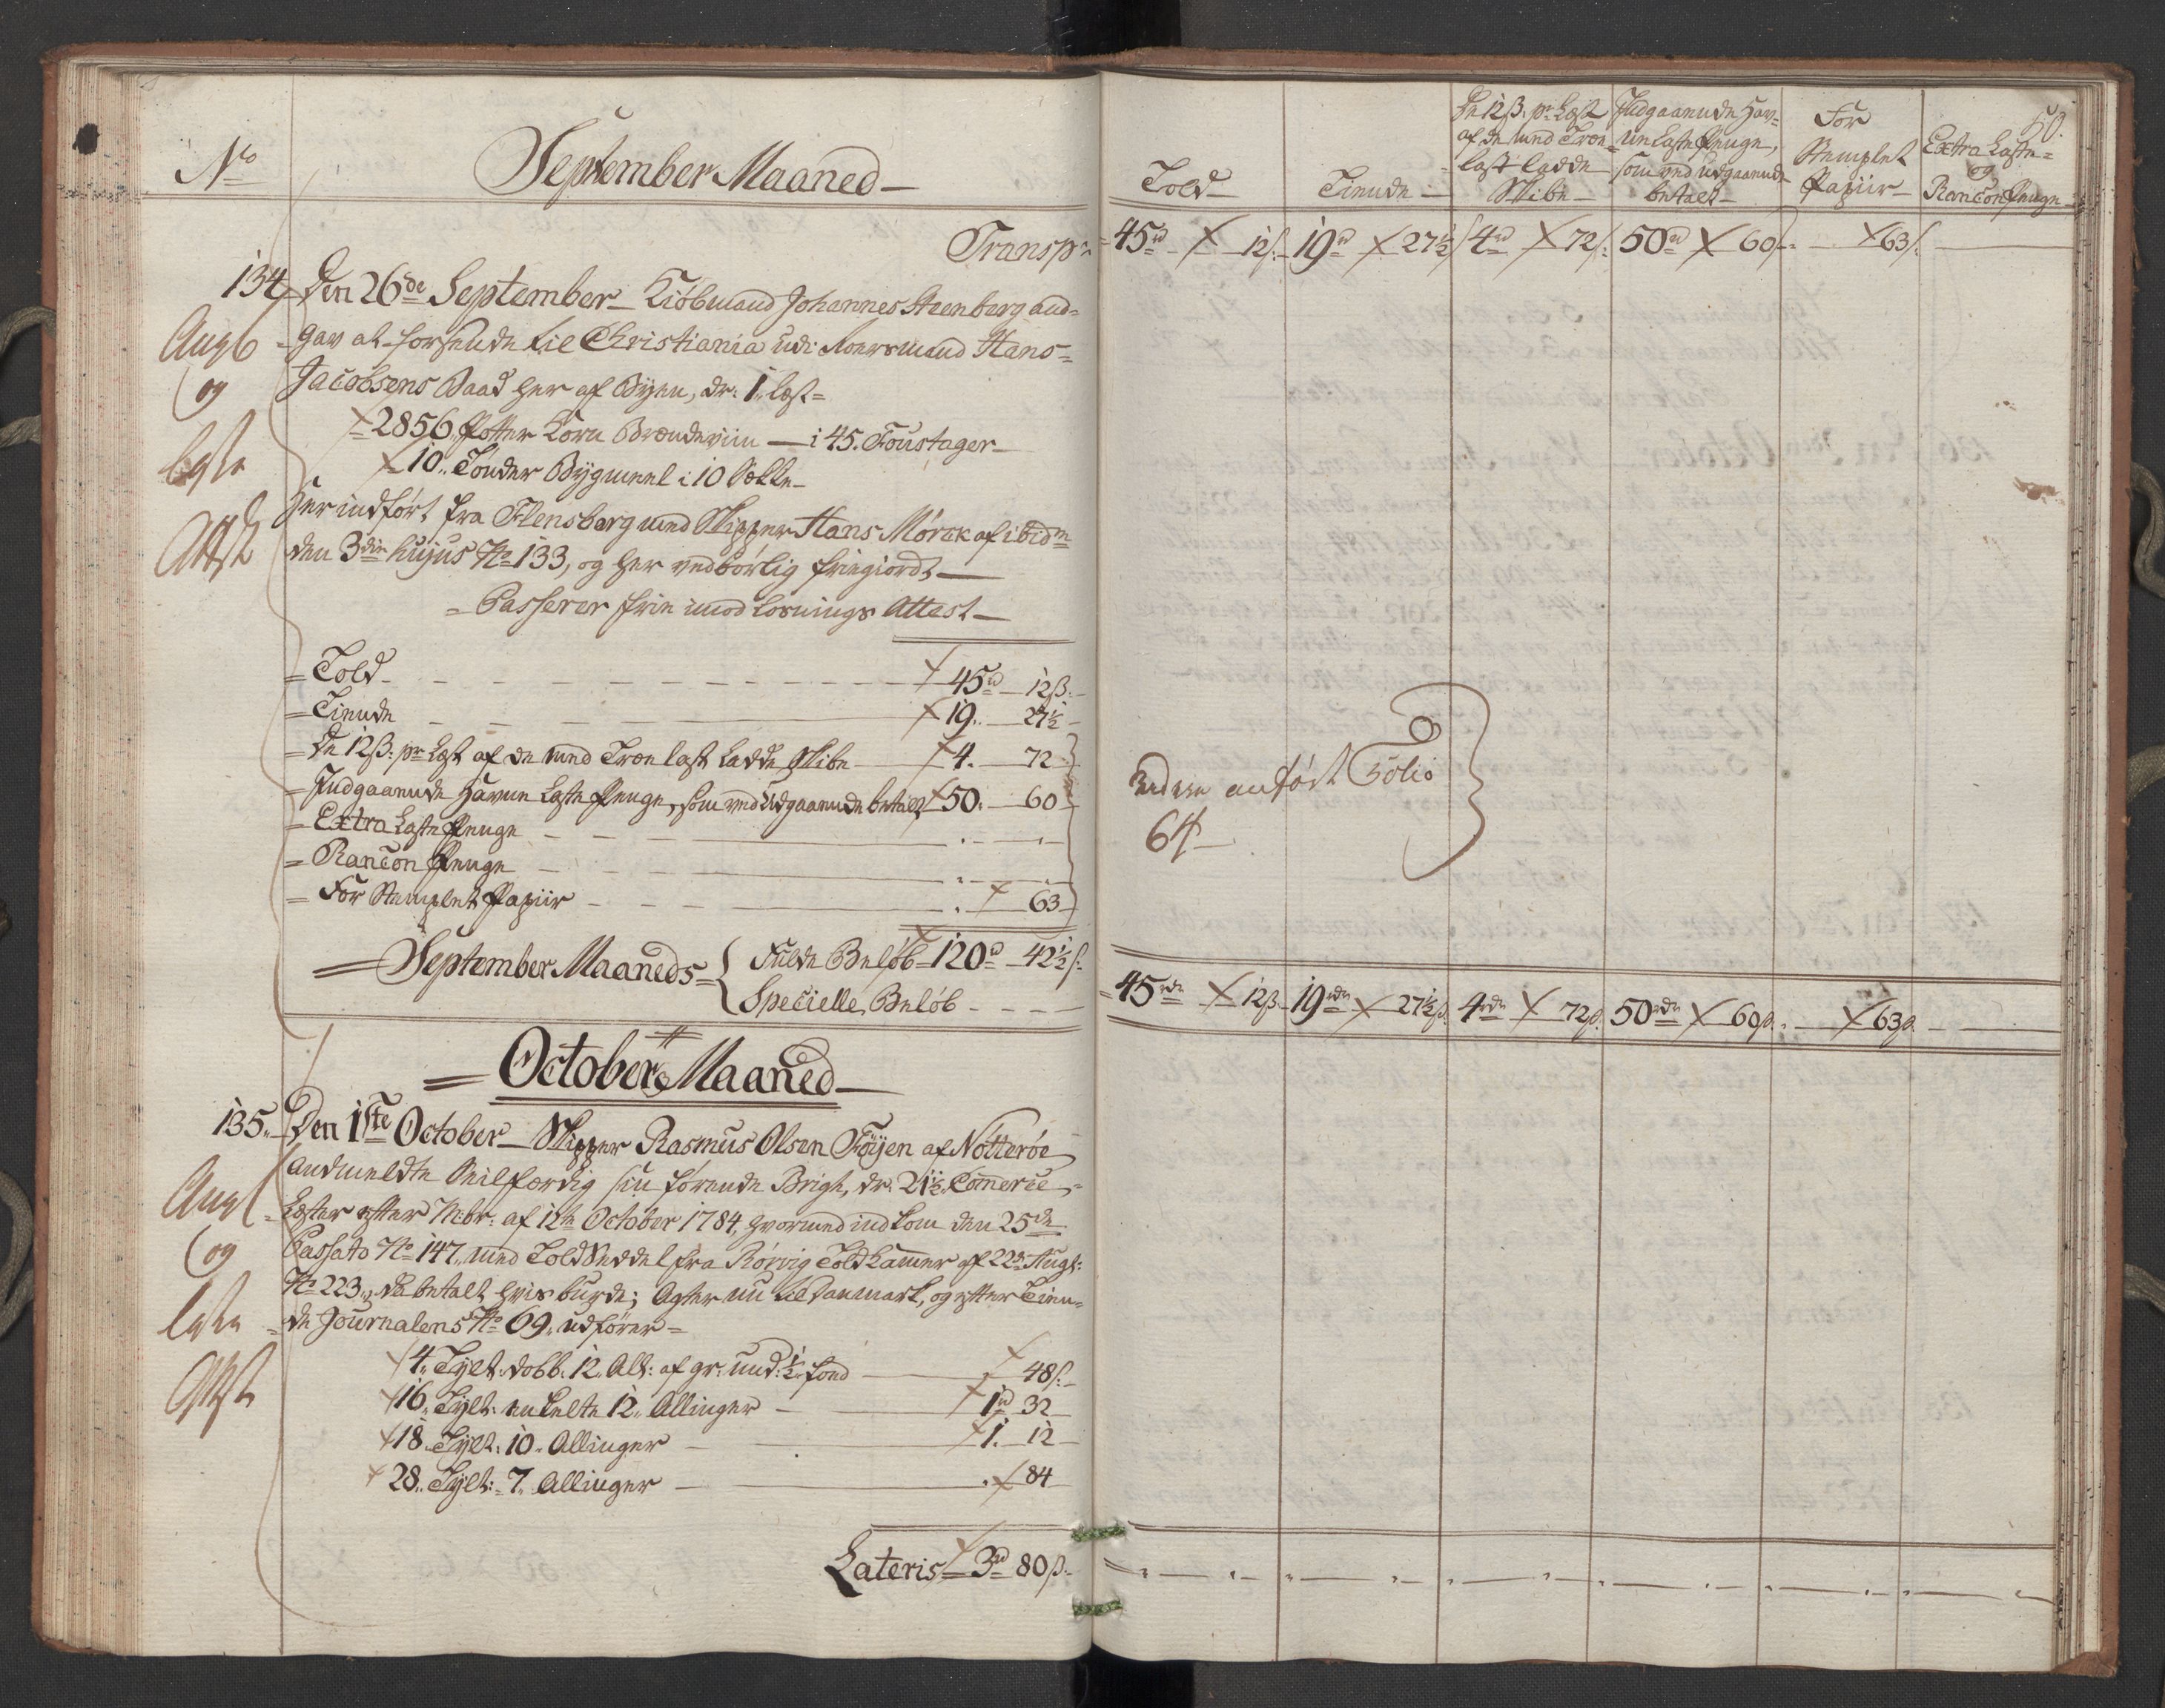 No
September Maaned
Transp:
134 Den 26de September Kiöbmand Johannes Steenberg and-
gav at forsende til Christiania udi Roersmand Hans
Jacobsens Baad her af Byen, dr: 1 læst
2856 Potter Korn Brændeviin i 45. Foustager
10 Tönder Bygmeel i 10 Sække
Her indfört fra Flensborg med Skipper Hans Mörck af ibidm
den 3die hujus No 133, og her vedbörlig friegiordt
Passerer frie imod Losnings Attest
Told 45rd 12ß
Tiende 19 27½
De 12ß: pr Læst af de med Træelast Ladde Skibe 4. 72
Indgaaende Havne Laste Penge, som ved Udgaaende betalt 50. 60
Extra Laste Penge
Rancon Penge
For Stemplet Papiir 63
September Maaneds Fulde Belöb 120rd 42½ß
Specielle Belöb
October Maaned
135. Den 1ste October Skipper Rasmus Olsen Föyen af Nötteröe
andmeldte Seilfærdig sin förende Brigh, dr: 21½ Commerce
Læster efter Mbr: af 12te October 1784, hvormed indkom den 25de
Passato No 147, med Told Seddel fra Rörvig Toldkamer af 22de Augt:
No 223, da betalt hvis burde; Agter nu til Danmark, og efter Tien-
de Journalens No 69, udförer
4 Tylt: dobb: 12 All: af gr: und: ½ fond 48ß
16 Tylt: enkelte 12 Allinger 1rd 32
18 Tylt: 10 Allinger 1. 12
28 Tylt: 7 Allinger 84
Lateris 3rd 80ß
og
Attst
og
Attst
50.
Told
Tiende
De 12ß: pr Læst
af de med Træe-
last ladde
Skibe
Indgaaende Hav-
ne Laste Penge,
som ved Udgaaende
betalt
For
Stemplet
Papiir
Extra Laste
og
Rancon Penge
45rd 12ß 19rd 27½ß 4rd 72ß 50rd 60ß 63ß
anfört Folio
64
45rdr 12ß 19rdr 27½ß 4rdr 72ß 50rdr 60ß 63ß